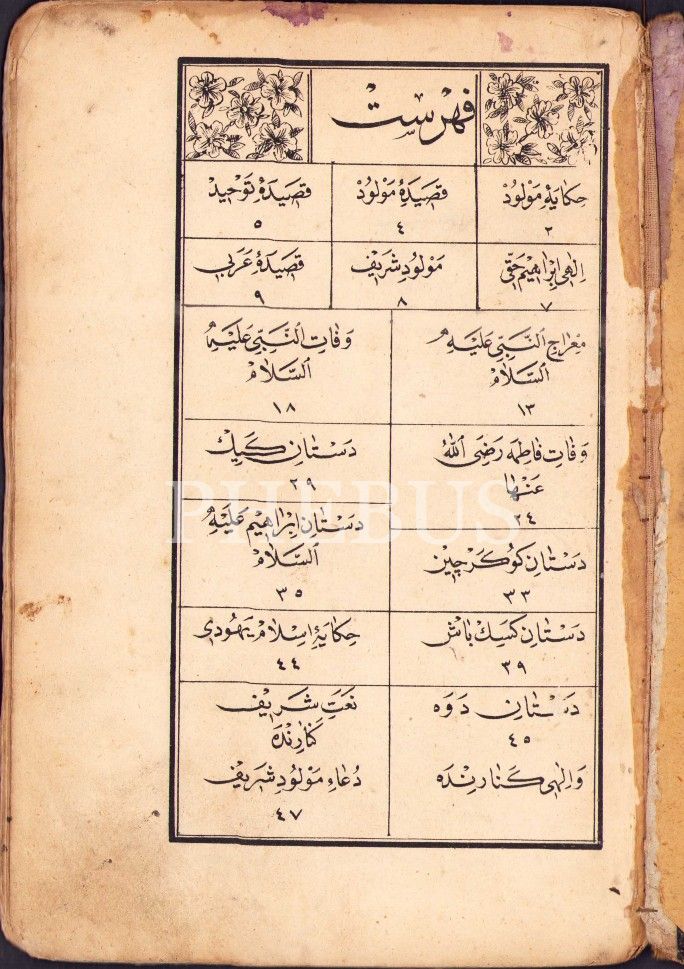 فهرست
حكایهٔ مولود
٢
قصیدهٔ مولود
٤
قصیدهٔ توحید
٥
الهی ابراهیم حقی
٧
مولود شریف
٨
قصیدهٔ عربی
٩
معراج النبی علیه
السلام
١٣
وفات النبی علیه
السلام
١٨
وفات فاطمه رضی الله
عنها
٢٤
دستان كیك
٢٩
دستان كوكرجین
٣٣
دستان ابراهیم علیه
السلام
٣٥
دستان كسك باش
٣٩
حكایهٔ اسلام یهودی
٤٤
دستان دوه
٤٥
والهی كنارنده
نعت شریف
كنارنده
دعاء مولود شریف
٤٧
١
PHEBUS